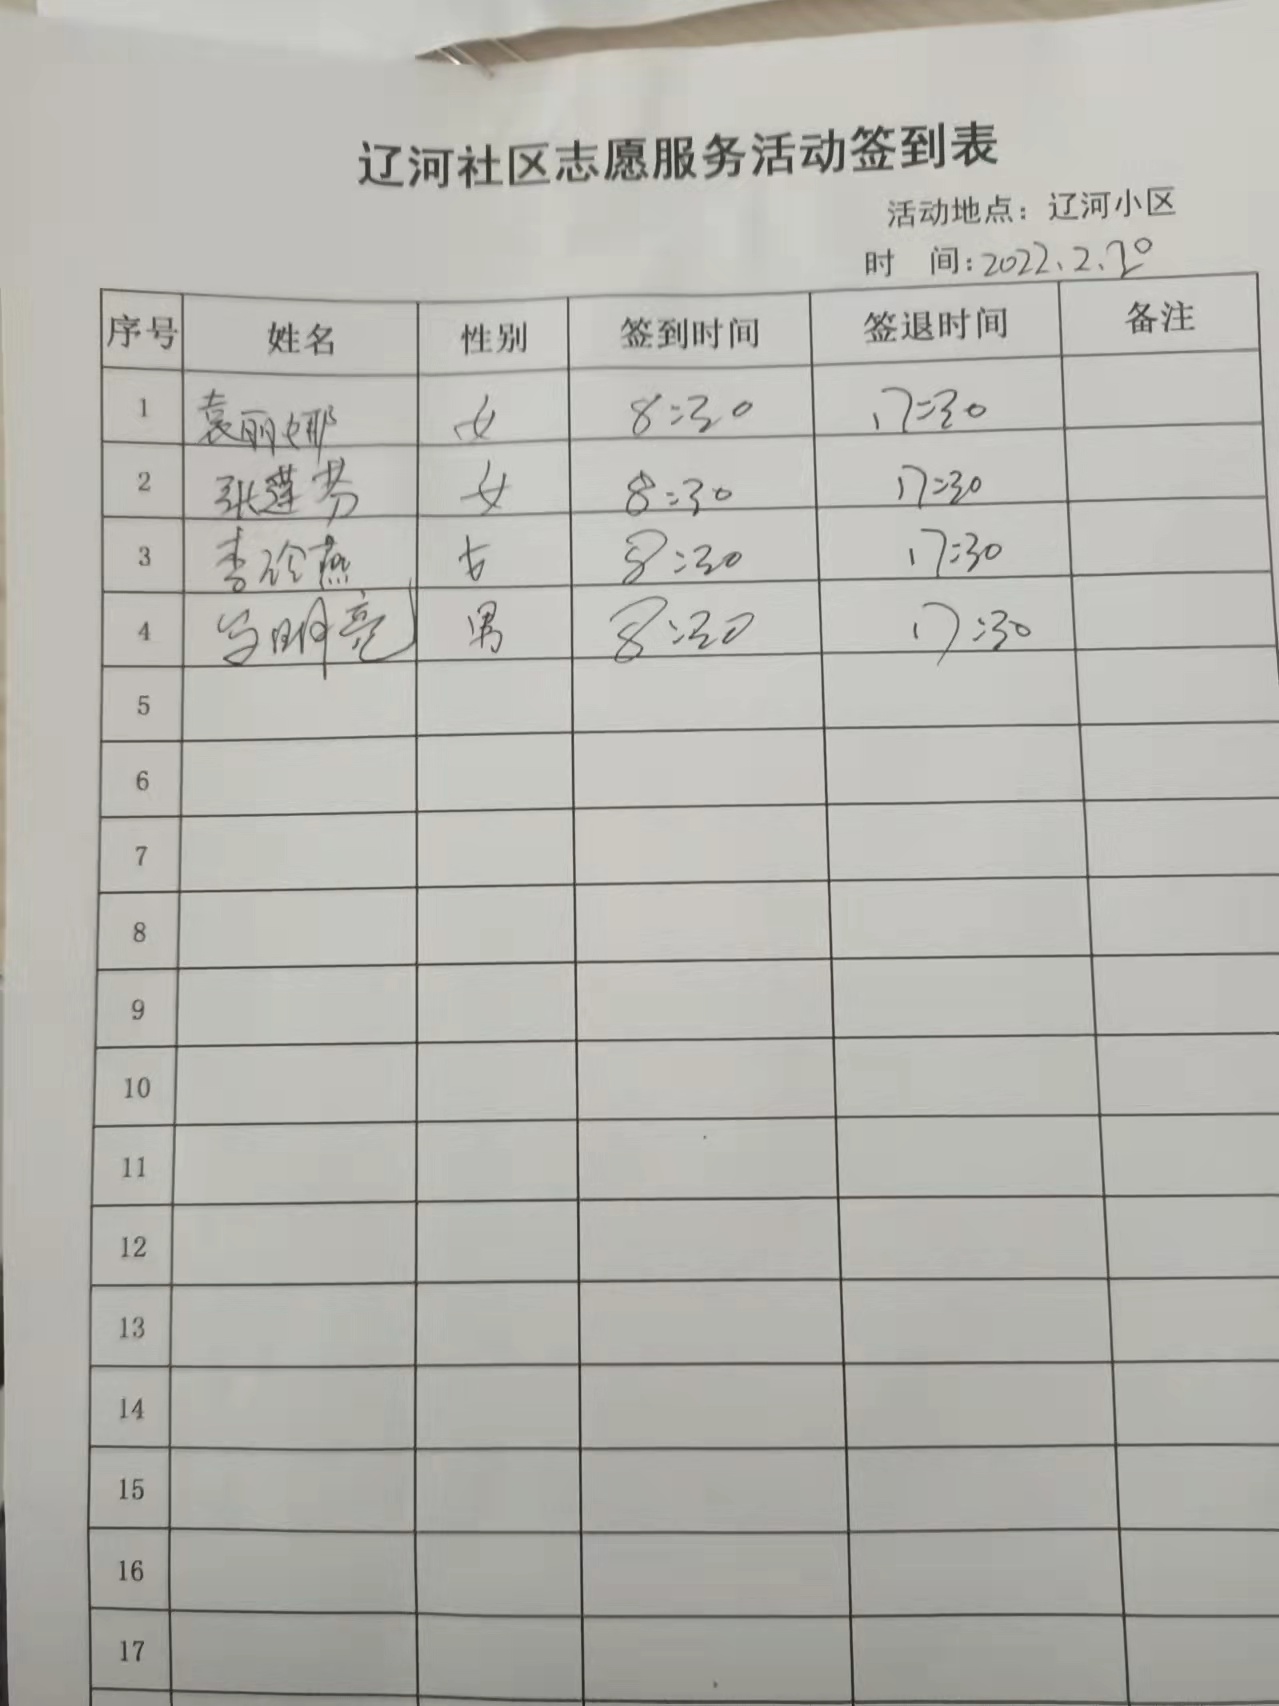 辽河社区志愿服务活动签到表
活动地点：辽河小区
时 间：2022.2.20
序号 姓名 性别 签到时间 签退时间 备注
1 袁丽娜 女 8:30 17:30
2 张莲芬 女 8:30 17:30
3 李玲燕 女 8:30 17:30
4 明亮 男 8:30 17:30
5
6
7
8
9
10
11
12
13
14
15
16
17